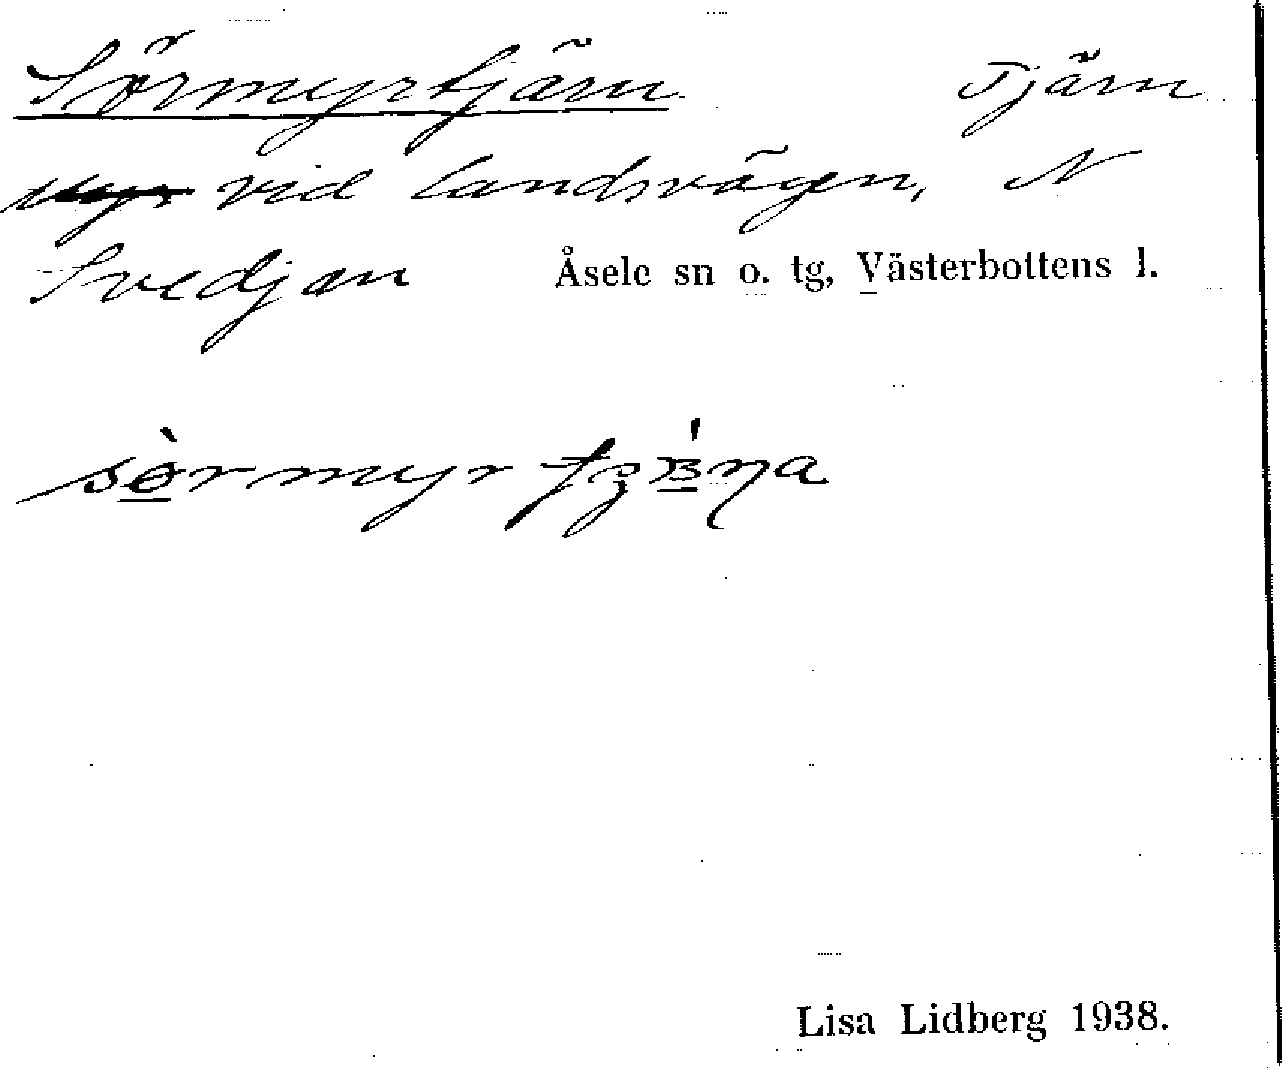 Sörmyrtjärn Tjärn
vid landsvägen, N
Svedjan Åsele sn o. tg, Västerbottens l.
Lisa Lidberg 1938.